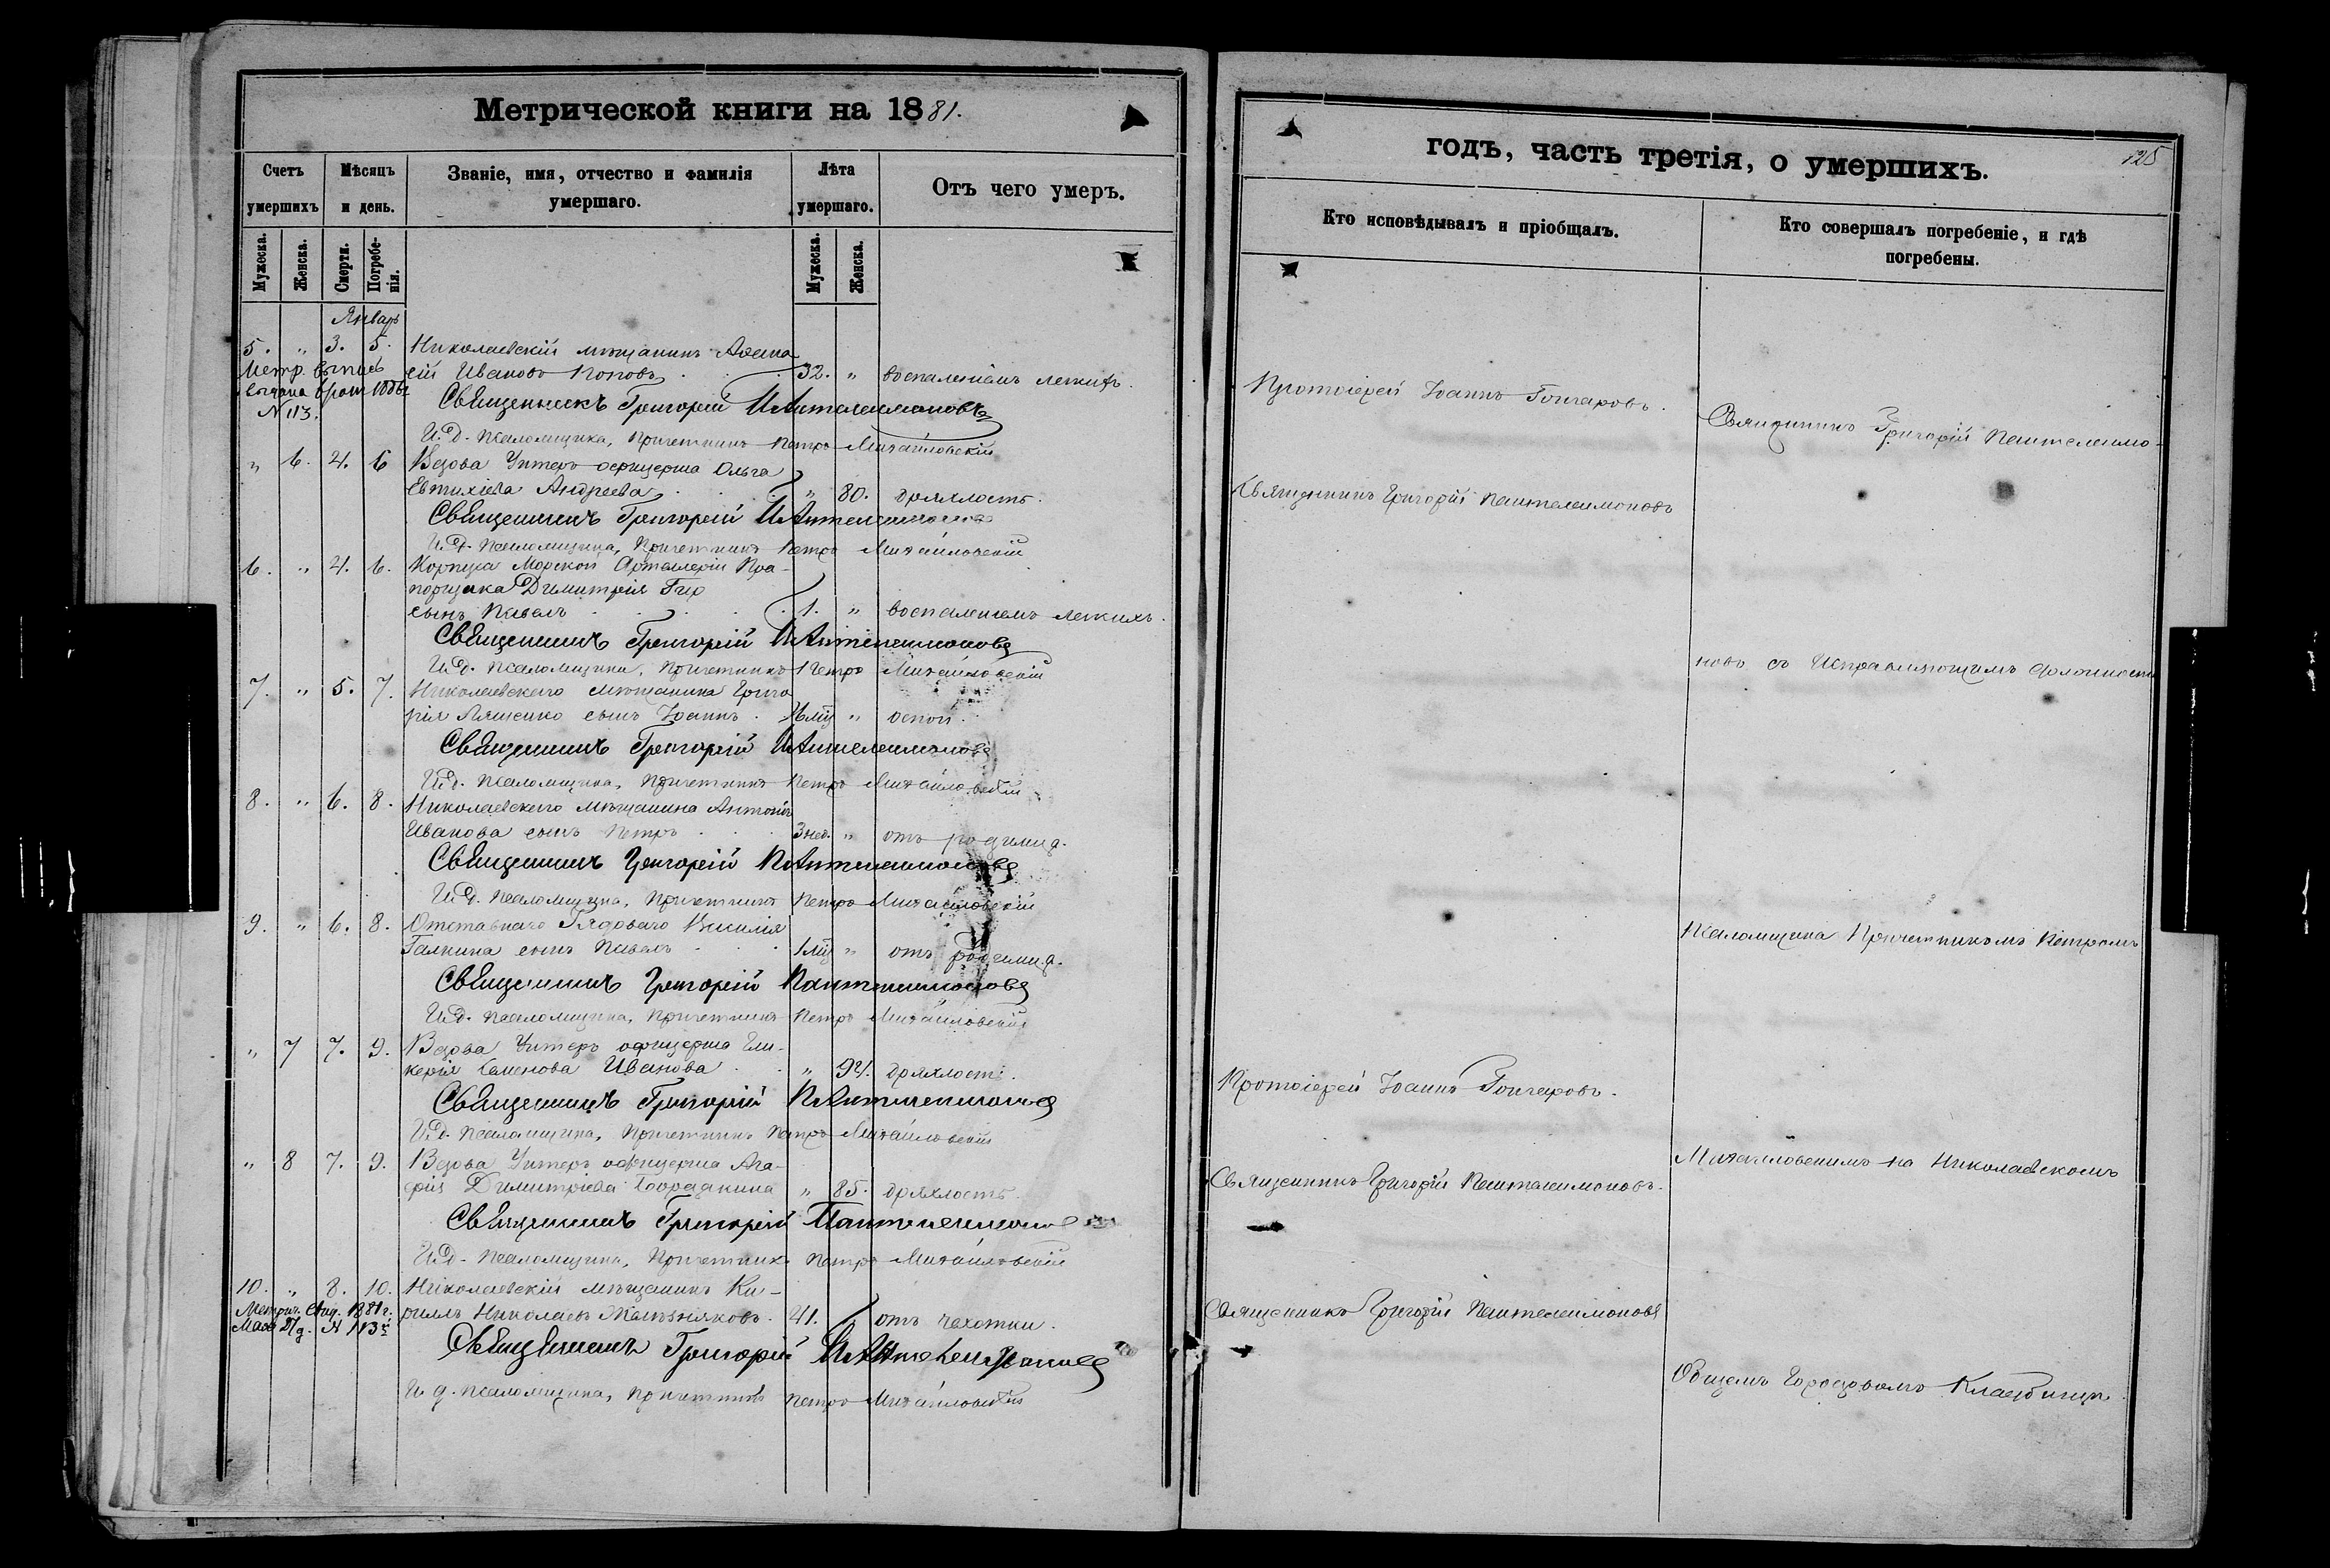 Метрической книги на 1881.
Счетъ умершихъ
Мѣсяцъ и день.
Званіе, имя, отчество и фамилія умершаго.
Лѣта умершаго.
Отъ чего умеръ.
Мужеска.
Женска.
Смерти.
Погребе-
нія.
Мужеска.
Женска.
Январь
5. " 3. 5. Николаевскій мѣщанинъ Афана
сій Ивановъ Поповъ 32. " воспаленіемъ легкихъ.
Метр. выпись
выдана
N 113.
Священникъ Григорій Пантелеимоновъ
И.д. псаломщика, Причетникъ Петръ Михайловскій
" 6. 4. 6 Вдова Унтеръ офицерша Ольга
Евтихіева Андреева " 80. дряхлость.
Священникъ Григорій Пантелеимоновъ
И.д. псаломщика, Причетникъ Петръ Михайловскій
6. " 4. 6. Корпуса Морской Артиллеріи Пра-
порщика Димитрія
сынъ Павелъ 1. " воспаленіемъ легкихъ.
Священникъ Григорій Пантелеимоновъ
И.д. псаломщика, Причетникъ Петръ Михайловскій
7. " 5. 7. Николаевскаго мѣщанина Григо
рія Лященко сынъ Іоаннъ " оспой.
Священникъ Григорій Пантелеимоновъ
И.д. псаломщика, Причетникъ Петръ Михайловскій
8. " 6. 8. Николаевскаго мѣщанина Антонія
Иванова сынъ Петръ 3 нед. " отъ родимца.
Священникъ Григорій Пантелеимоновъ
И.д. псаломщика, Причетникъ Петръ Михайловскій
9. " 6. 8. Отставнаго Рядоваго Василія
Галкина сынъ Павелъ 1 мѣц " отъ родимца.
Священникъ Григорій Пантелеимоновъ
И.д. псаломщика, Причетникъ Петръ Михайловскій
" 7 7. 9. Вдова Унтеръ офицерша Гли-
керія Семенова Иванова " 94. дряхлость.
Священникъ Григорій Пантелеимоновъ
И.д. псаломщика, Причетникъ Петръ Михайловскій
" 8 7. 9. Вдова Унтеръ офицерша Ага-
фія Димитріева " 85. дряхлость.
Священникъ Григорій Пантелеимоновъ
И.д. псаломщика, Причетникъ Петръ Михайловскій
10. " 8. 10. Николаевскій мѣщанинъ Ки-
риллъ Николаевъ Желѣзняковъ. 41. отъ чахотки.
Метрич. свид. 1881 г.
Мая 27 д. N 113
Священникъ Григорій Пантелеимоновъ
И д. псаломщика, Причетникъ Петръ Михайловскій
годъ, часть третія, о умершихъ.
125
Кто исповѣдывалъ и пріобщалъ.
Кто совершалъ погребеніе, и гдѣ
погребены.
Протоіерей Іоаннъ Гончаровъ.
Священникъ Григорій Пантелеимо-
Священникъ Григорій Пантелеимоновъ
новъ съ Исправляющимъ должность
Псаломщика Причетникомъ Петромъ
Протоіерей Іоаннъ Гончаровъ.
Михайловскимъ на Николаевскомъ
Священникъ Григорій Пантелеимоновъ.
Священникъ Григорій Пантелеимоновъ
Общемъ Городовомъ Кладбищѣ.